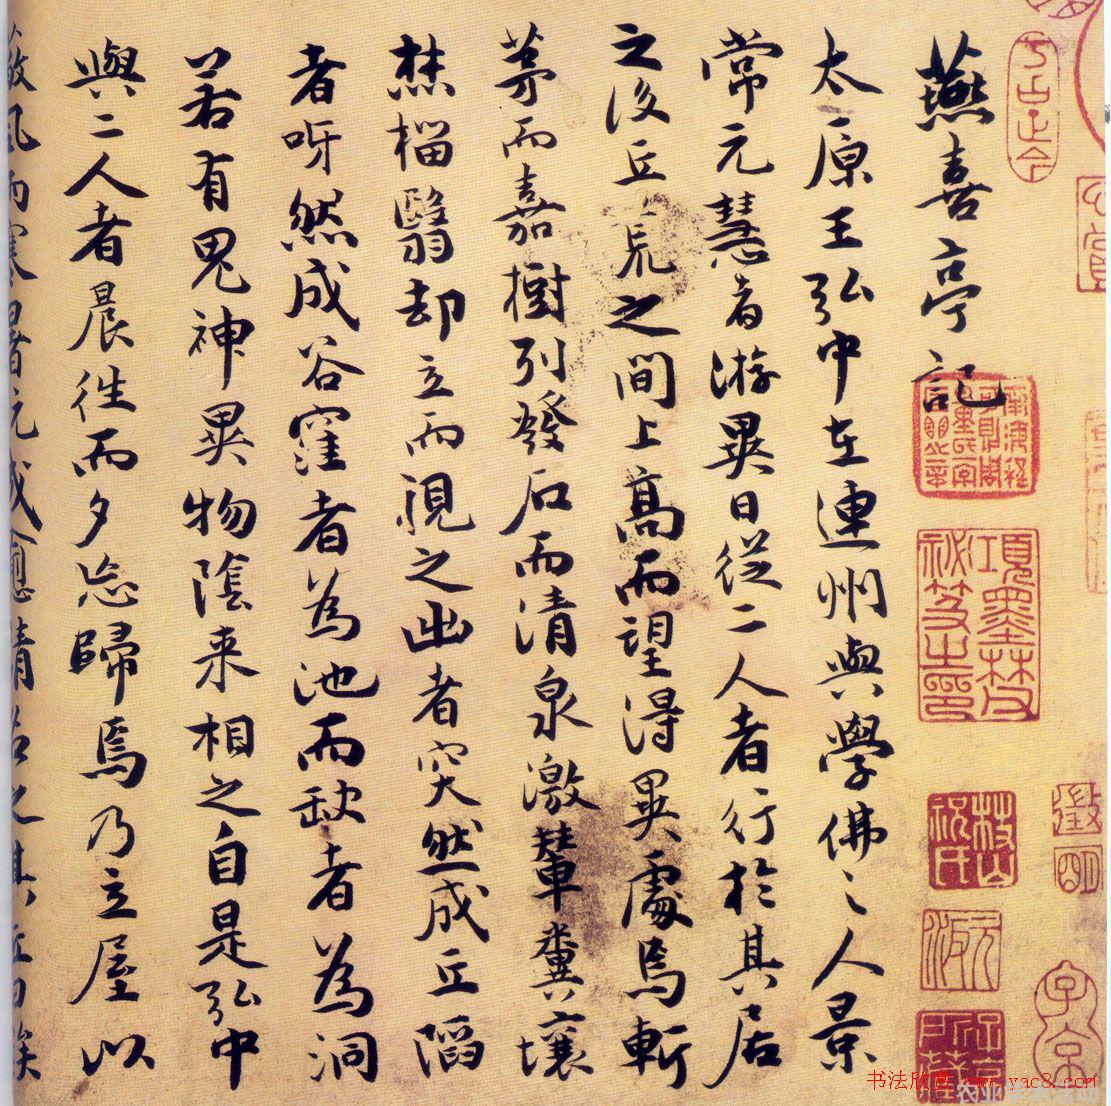 燕喜亭記
太原王弘中在連州與學佛之人景
常元慧者游異日從二人者行於其居
之後丘荒之間上高而望得異處焉斬
茅而嘉樹列發石而清泉激輦糞壤
焚椔翳却立而視之出者突然成丘陷
者呀然成谷窪者為池而缺者為洞
若有鬼神異物陰来相之自是弘中
與二人者晨徃而夕忘歸焉乃立屋以
蔽風雨寒暑成愈請名之其丘曰竢
項墨林
祕笈之印
枝山
祝氏
徵明
子京
书法欣赏 www.yac8.com